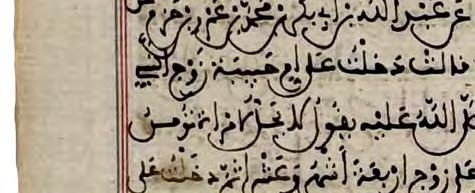 عن عبد الله بن ابي بكر بن محمد بن عمرو بن حزم عن
قالت دخلت على ام حبيبة زوج النبي
صلى الله عليه يقول لا يحل لامرأة تومن
على زوج اربعة أشهر وعشرا ثم دخلت على